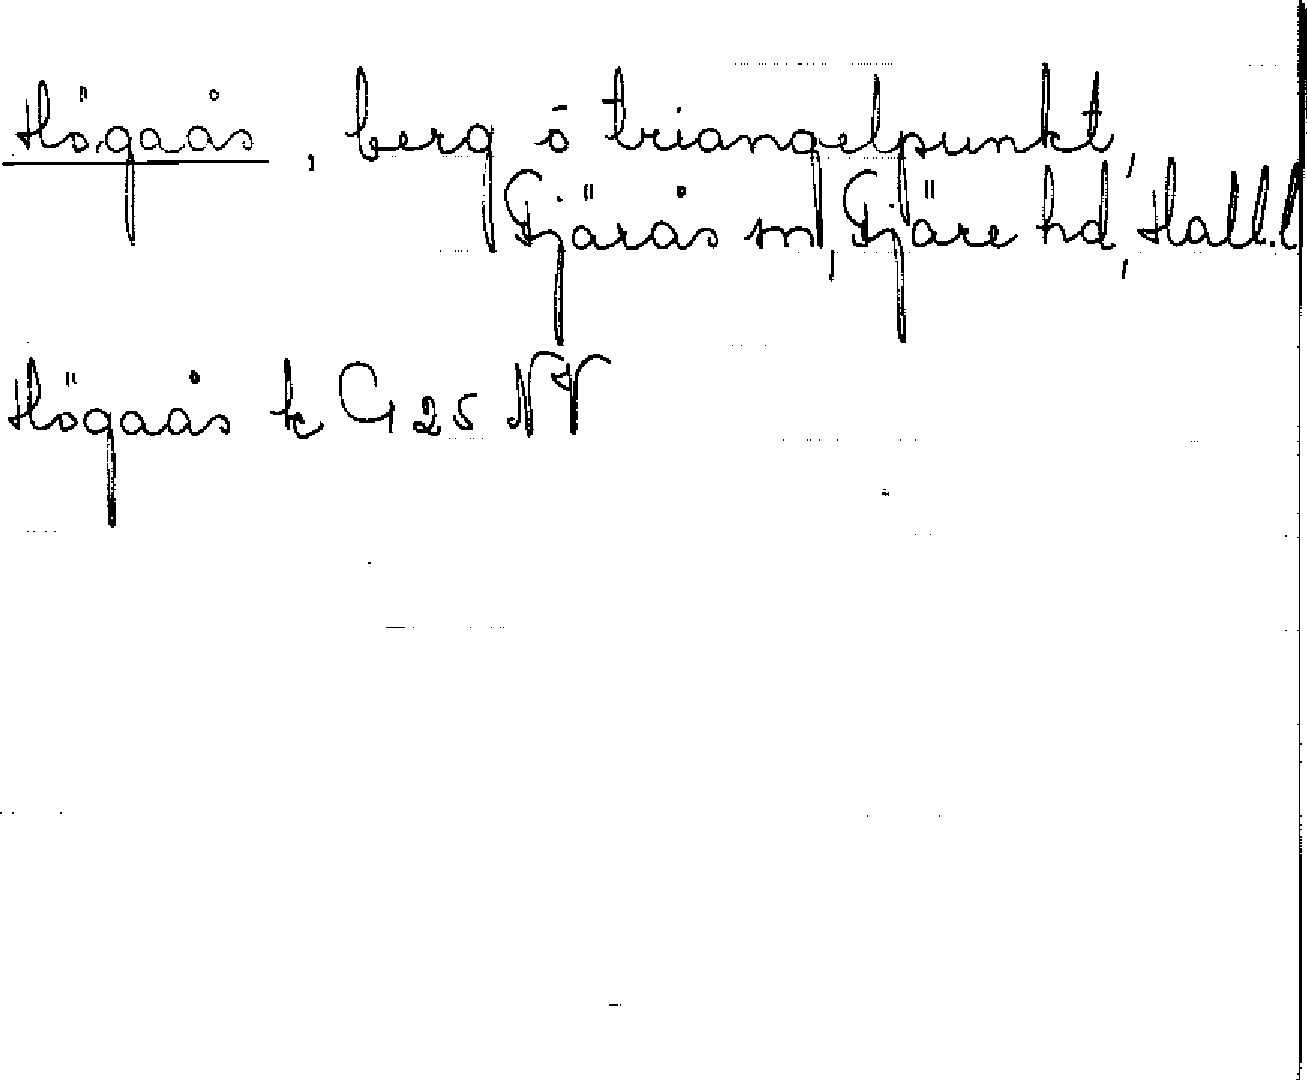 Högaås, berg o triangelpunkt,
Fjärås sn, Fjäre hd, Hall. l
Högaås k G 25 NV